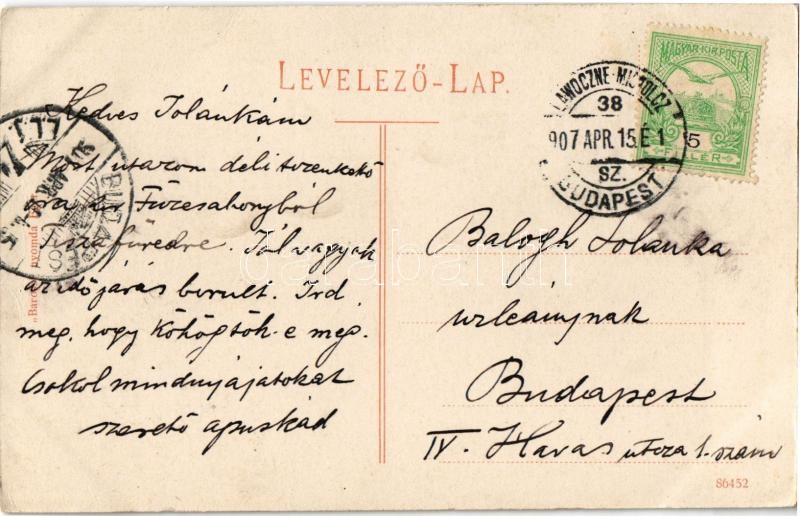 LEVELEZŐ-LAP.
MAGYAR KIR. POSTA
5
FILLÉR
LAWOCZNE-MISKOLCZ
38
907 APR. 15. É 1
SZ.
BUDAPEST
Kedves Jolánkám
Most utazom déli tizenkettő
óra Füzesabonyból
Tiszafüredre. Jól vagyok
az időjárás borult. Írd
meg, hogy köhögtök-e még.
Csókol mindnyájatokat
szerető apuskád
Balogh Jolánka
urleánynak
Budapest
IV. Havas utcza 1. szám
86452
darabanth